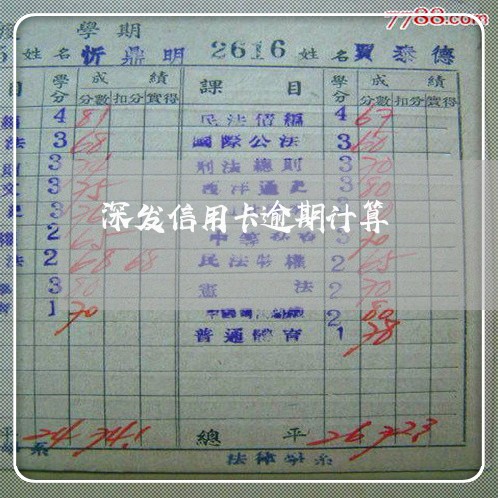 7788.com
學期
姓名 忻鼎明 2616 姓名 賈泰德
目 學分 成績 課目 學分 成績
分數 扣分 實得 分數 扣分 實得
4 81 民法債編 4 67
法 3 68 國際公法 3 60
則 3 刑法總則 3 70
3 75 西洋通史 3 80
深发信用卡逾期计算
2 3 70
法 2 68 68 民法物權 2 65
3 80 憲法 2 70
1 70 2 80
普通體育 1 78
平 24 74.1 總平 26 72.3
系 法律學系